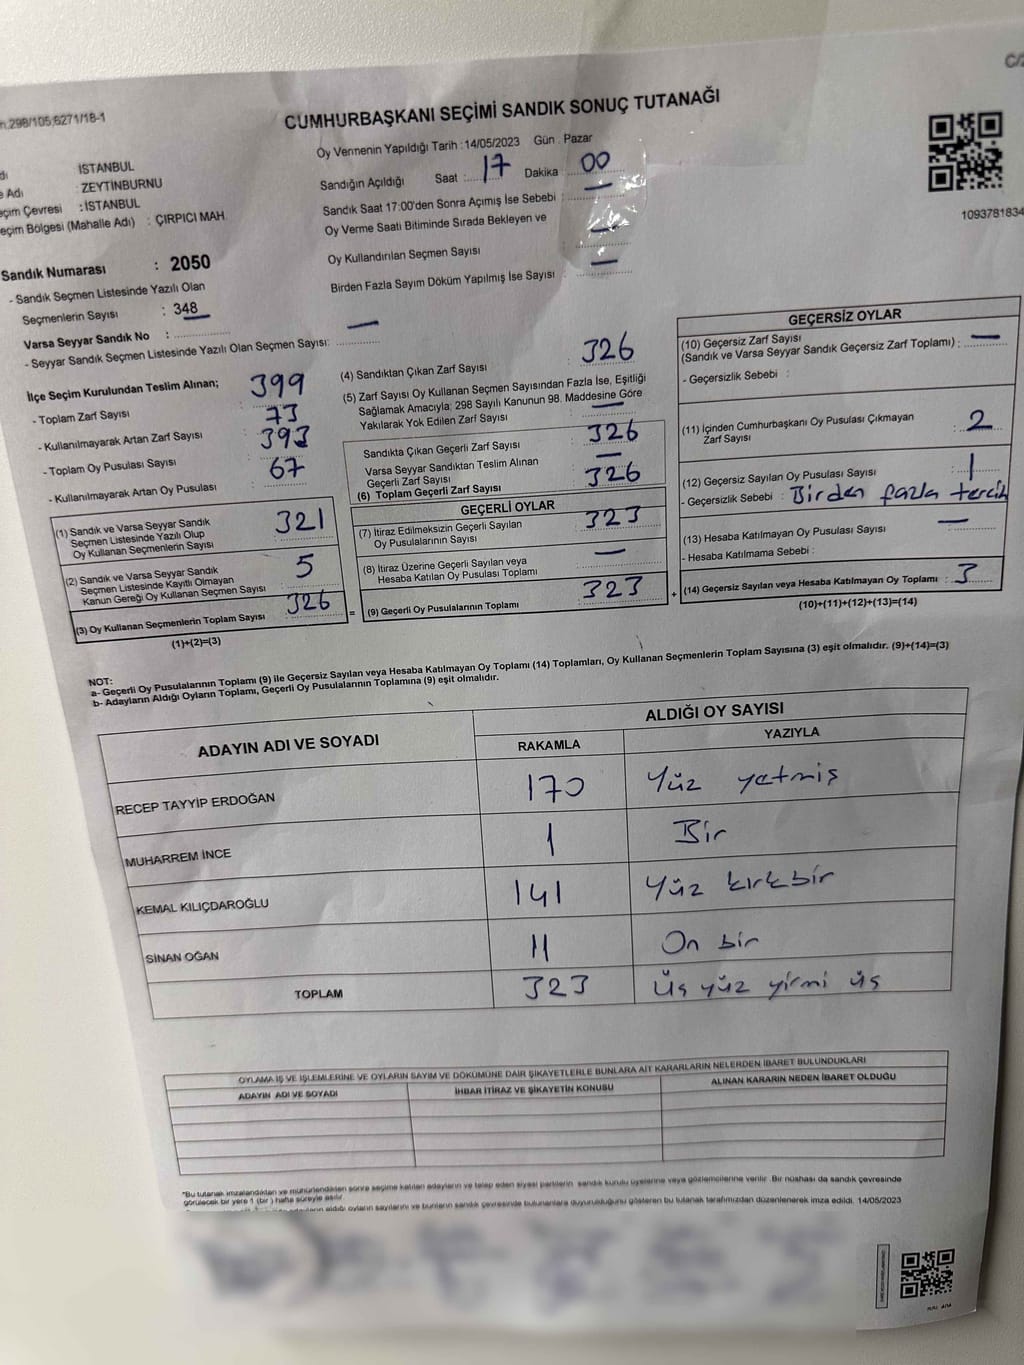 C/2
298/105;6271/18-1
CUMHURBAŞKANI SEÇİMİ SANDIK SONUÇ TUTANAĞI
Oy Vermenin Yapıldığı Tarih :14/05/2023 Gün . Pazar
Sandığın Açıldığı Saat : 17 Dakika : 00
Sandık Saat 17:00'den Sonra Açımış İse Sebebi : —
Oy Verme Saati Bitiminde Sırada Bekleyen ve
Oy Kullandırılan Seçmen Sayısı —
Birden Fazla Sayım Döküm Yapılmış İse Sayısı —
1093781834
İSTANBUL
Adı : ZEYTİNBURNU
eçim Çevresi : İSTANBUL
eçim Bölgesi (Mahalle Adı) : ÇIRPICI MAH
Sandık Numarası : 2050
- Sandık Seçmen Listesinde Yazılı Olan
Seçmenlerin Sayısı : 348
Varsa Seyyar Sandık No :
- Seyyar Sandık Seçmen Listesinde Yazılı Olan Seçmen Sayısı: —
İlçe Seçim Kurulundan Teslim Alınan;
- Toplam Zarf Sayısı : 399
- Kullanılmayarak Artan Zarf Sayısı : 73
- Toplam Oy Pusulası Sayısı : 393
- Kullanılmayarak Artan Oy Pusulası : 67
(1) Sandık ve Varsa Seyyar Sandık
Seçmen Listesinde Yazılı Olup
Oy Kullanan Seçmenlerin Sayısı 321
(2) Sandık ve Varsa Seyyar Sandık
Seçmen Listesinde Kayıtlı Olmayan
Kanun Gereği Oy Kullanan Seçmen Sayısı 5
(3) Oy Kullanan Seçmenlerin Toplam Sayısı 326
(1)+(2)=(3)
=
(4) Sandıktan Çıkan Zarf Sayısı 326
(5) Zarf Sayısı Oy Kullanan Seçmen Sayısından Fazla İse, Eşitliği
Sağlamak Amacıyla; 298 Sayılı Kanunun 98. Maddesine Göre
Yakılarak Yok Edilen Zarf Sayısı —
Sandıkta Çıkan Geçerli Zarf Sayısı 326
Varsa Seyyar Sandıktan Teslim Alınan
Geçerli Zarf Sayısı —
(6) Toplam Geçerli Zarf Sayısı 326
GEÇERLİ OYLAR
(7) İtiraz Edilmeksizin Geçerli Sayılan
Oy Pusulalarının Sayısı 323
(8) İtiraz Üzerine Geçerli Sayılan veya
Hesaba Katılan Oy Pusulası Toplamı —
(9) Geçerli Oy Pusulalarının Toplamı 323
+
GEÇERSİZ OYLAR
(10) Geçersiz Zarf Sayısı
(Sandık ve Varsa Seyyar Sandık Geçersiz Zarf Toplamı) : —
- Geçersizlik Sebebi :
(11) İçinden Cumhurbaşkanı Oy Pusulası Çıkmayan
Zarf Sayısı : 2
(12) Geçersiz Sayılan Oy Pusulası Sayısı : 1
- Geçersizlik Sebebi : Birden fazla tercih
(13) Hesaba Katılmayan Oy Pusulası Sayısı —
- Hesaba Katılmama Sebebi :
(14) Geçersiz Sayılan veya Hesaba Katılmayan Oy Toplamı : 3
(10)+(11)+(12)+(13)=(14)
NOT:
a- Geçerli Oy Pusulalarının Toplamı (9) ile Geçersiz Sayılan veya Hesaba Katılmayan Oy Toplamı (14) Toplamları, Oy Kullanan Seçmenlerin Toplam Sayısına (3) eşit olmalıdır. (9)+(14)=(3)
b- Adayların Aldığı Oyların Toplamı, Geçerli Oy Pusulalarının Toplamına (9) eşit olmalıdır.
ADAYIN ADI VE SOYADI
ALDIĞI OY SAYISI
RAKAMLA YAZIYLA
RECEP TAYYİP ERDOĞAN 170 Yüz yetmiş
MUHARREM İNCE 1 Bir
KEMAL KILIÇDAROĞLU 141 Yüz kırkbir
SİNAN OĞAN 11 On bir
TOPLAM 323 Üç yüz yirmi üç
OYLAMA İŞ VE İŞLEMLERİNE VE OYLARIN SAYIM VE DÖKÜMÜNE DAİR ŞİKAYETLERLE BUNLARA AİT KARARLARIN NELERDEN İBARET BULUNDUKLARI
ADAYIN ADI VE SOYADI İHBAR İTİRAZ VE ŞİKAYETİN KONUSU ALINAN KARARIN NEDEN İBARET OLDUĞU
*Bu tutanak imzalandıktan ve mühürlendikten sonra seçime katılan adayların ve talep eden siyasi partilerin sandık kurulu üyelerine veya gözlemcilerine verilir. Bir nüshası da sandık çevresinde
görülecek bir yere 1 (bir) hafta süreyle asılır.
adayların aldığı oyların sayılarını ve bunların sandık çevresinde bulunanlara duyurulduğunu gösteren bu tutanak tarafımızdan düzenlenerek imza edildi. 14/05/2023